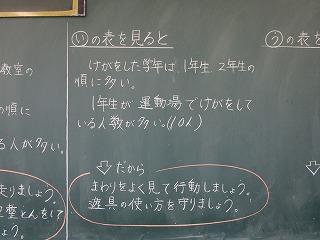 教室の
の順に
る人が多い。
走りましょう。
整とんをして
しょう。
いの表を見ると
けがをした学年は 1年生、2年生の
順に多い。
1年生が 運動場でけがをして
いる人数が多い。(10人)
⇩だから
まわりをよく見て行動しましょう。
遊具の使い方を守りましょう。
うの表を